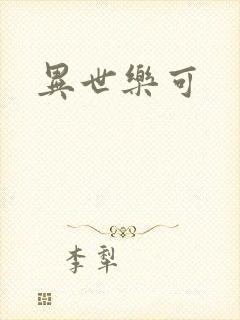 異世樂可
李犁